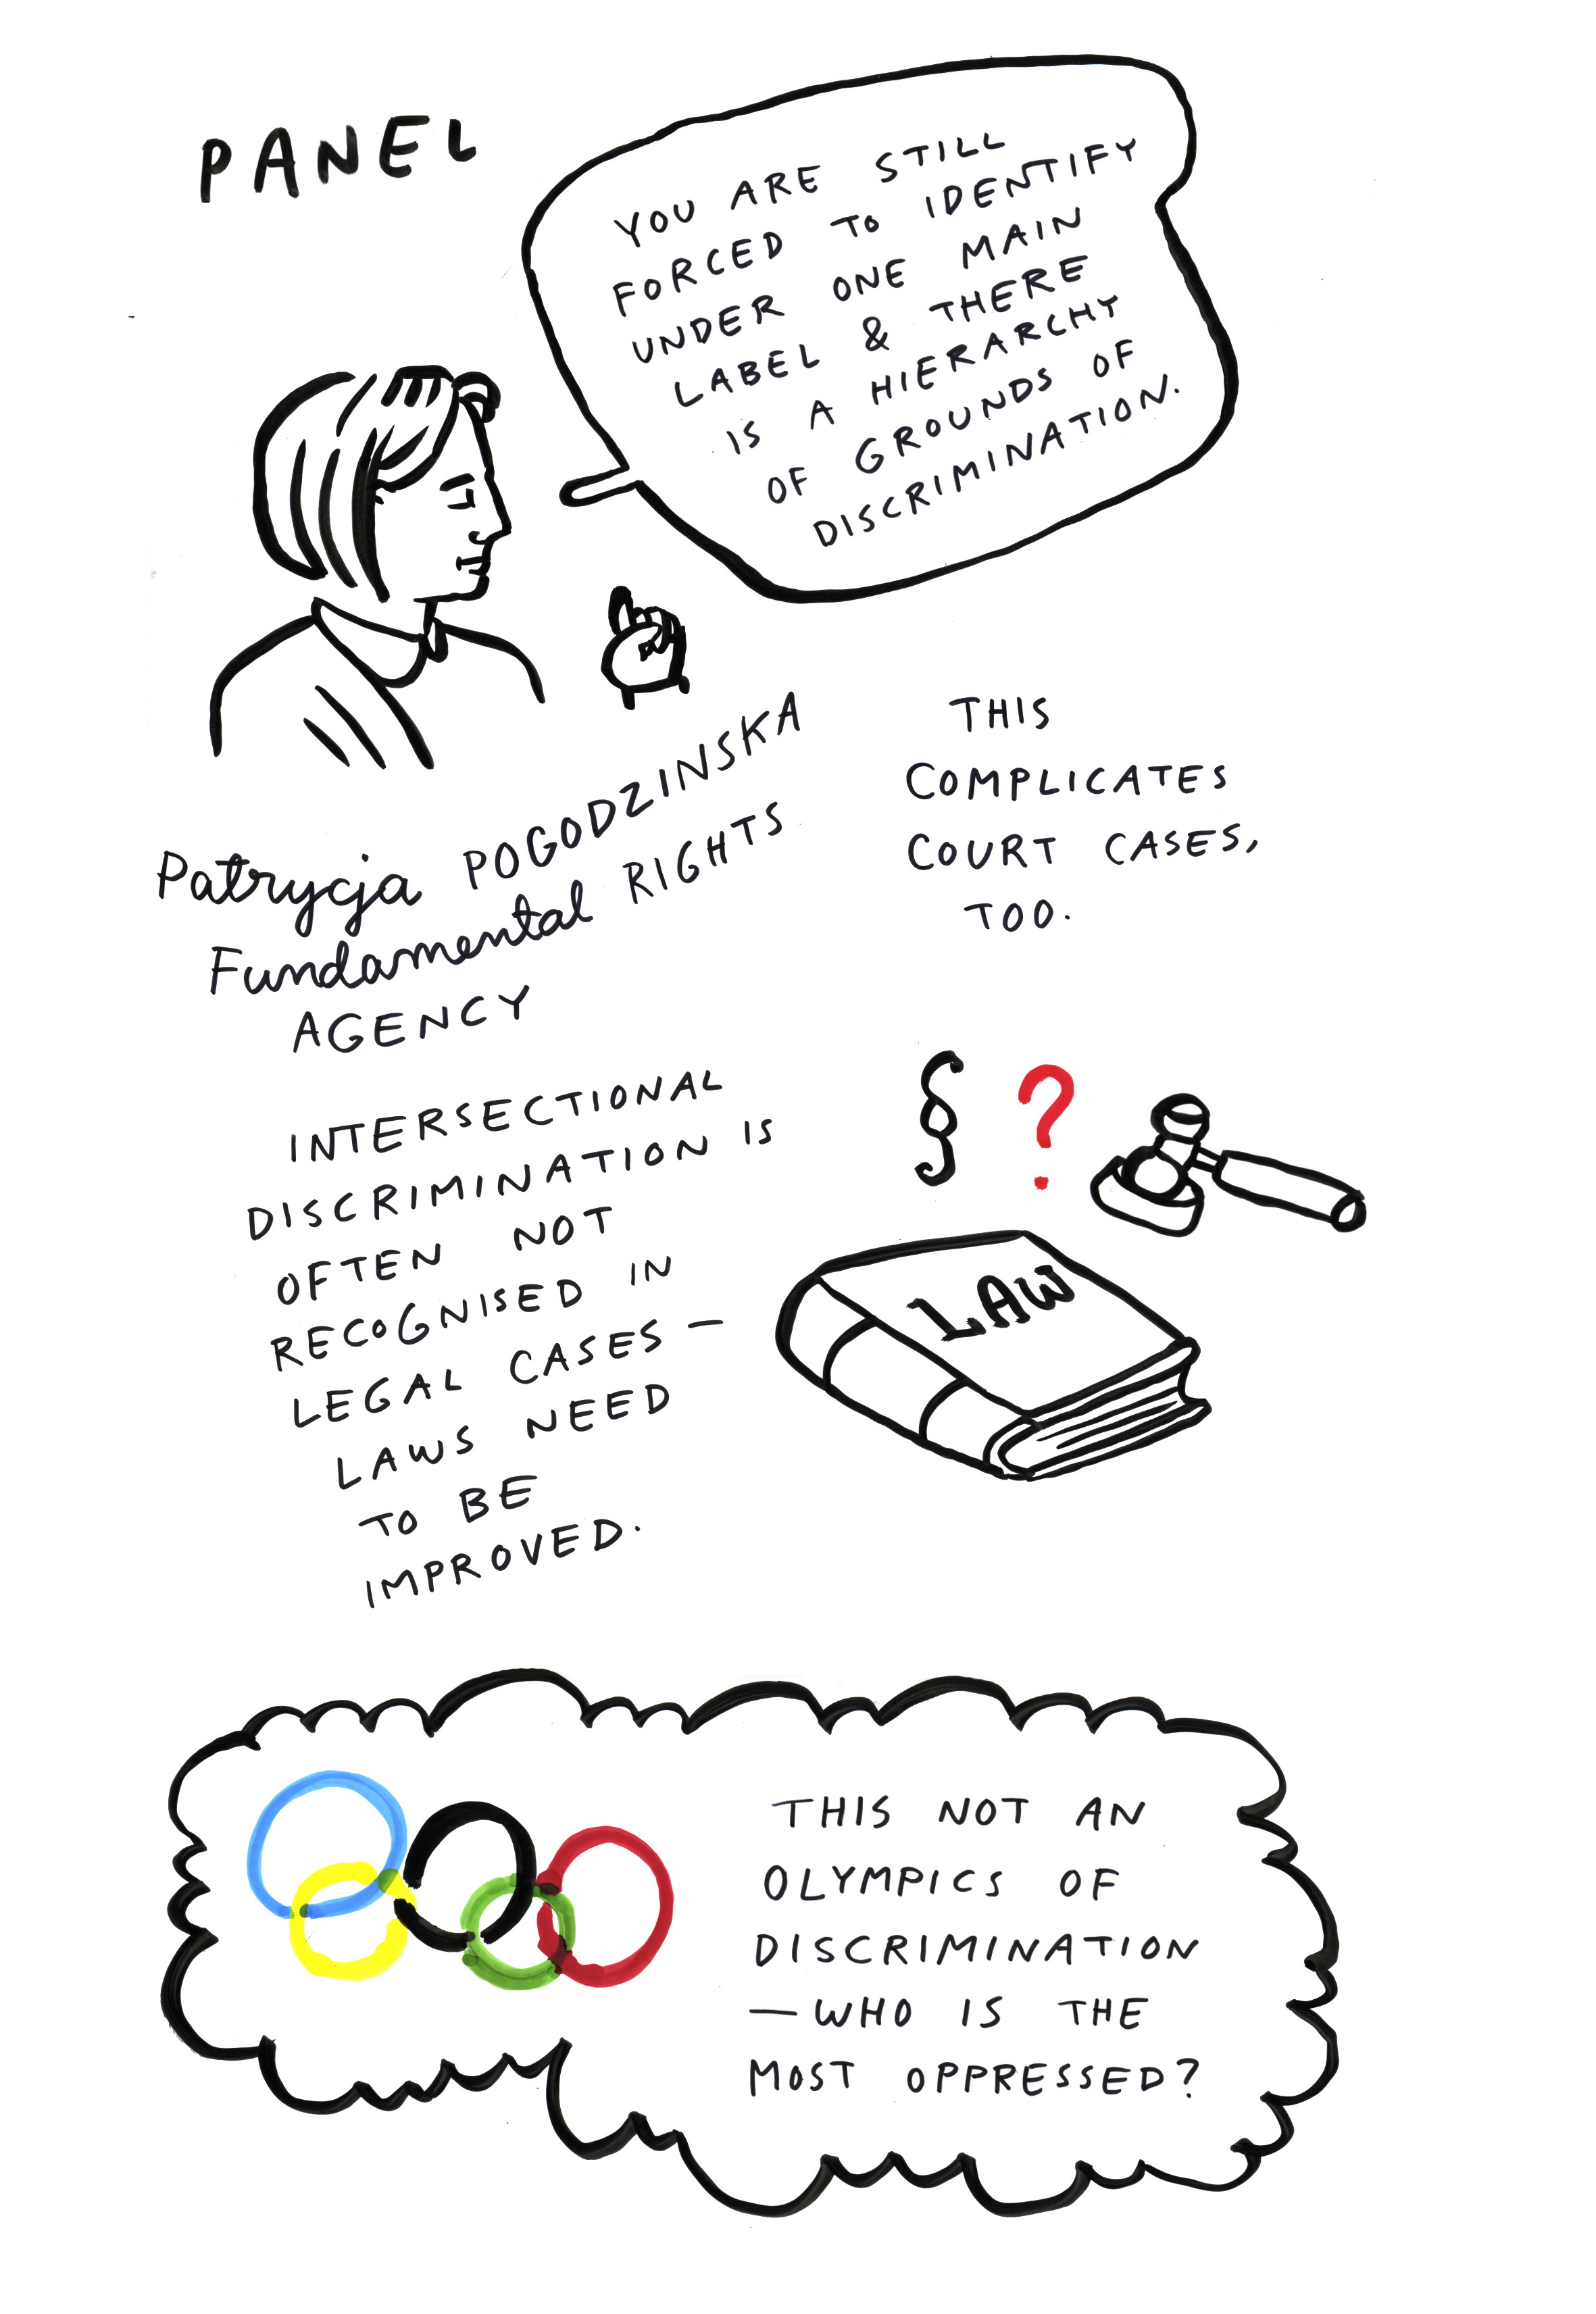 PANEL
YOU ARE STILL
FORCED TO IDENTIFY
UNDER ONE MAIN
LABEL & THERE
IS A HIERARCHY
OF GROUNDS OF
DISCRIMINATION.
Patrycja POGODZINSKA
Fundamental RIGHTS
AGENCY
THIS
COMPLICATES
COURT CASES,
TOO.
INTERSECTIONAL
DISCRIMINATION IS
OFTEN NOT
RECOGNISED IN
LEGAL CASES —
LAWS NEED
TO BE
IMPROVED.
§ ?
LAW
THIS NOT AN
OLYMPICS OF
DISCRIMINATION
— WHO IS THE
MOST OPPRESSED?